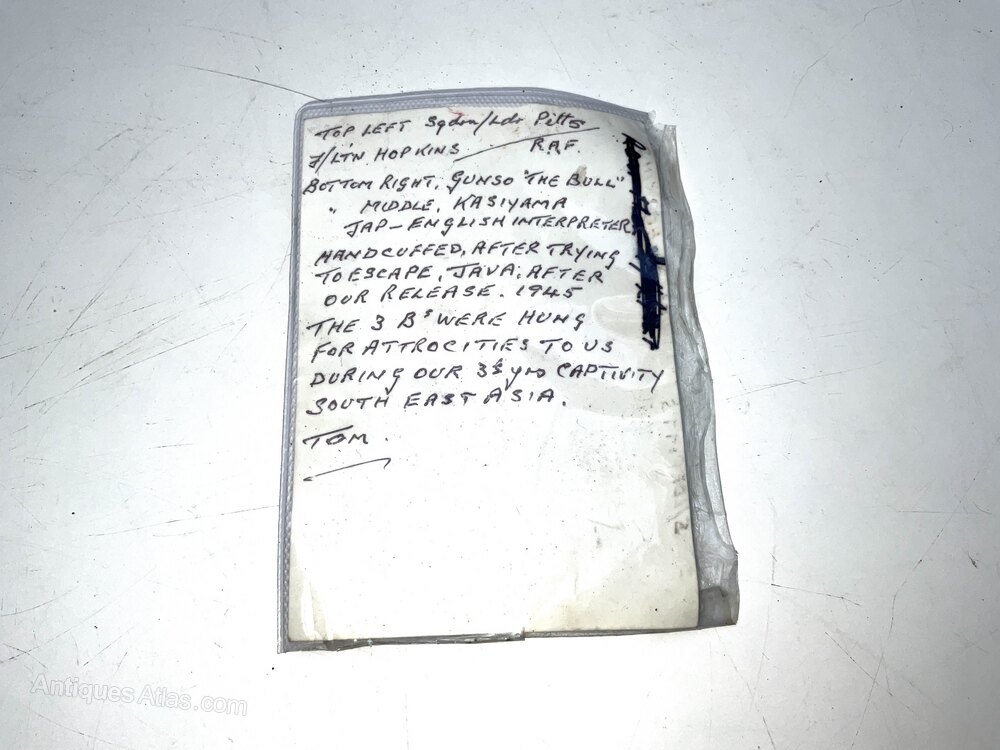 TOP LEFT Sqdrn/Ldr Pitts
F/LTN HOPKINS R.A.F.
BOTTOM RIGHT, GUNSO "THE BULL"
" MIDDLE, KASIYAMA
JAP-ENGLISH INTERPRETER
HANDCUFFED, AFTER TRYING
TO ESCAPE, JAVA, AFTER
OUR RELEASE. 1945
THE 3 Bs WERE HUNG
FOR ATTROCITIES TO US
DURING OUR 3½ yrs CAPTIVITY
SOUTH EAST ASIA.
TOM.
Antiques Atlas.com